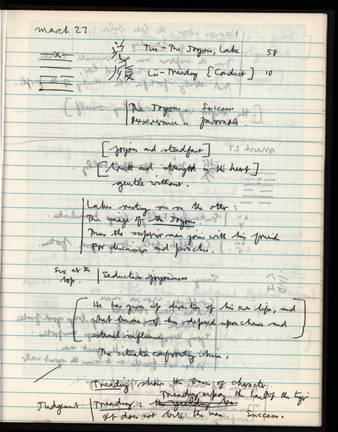 march 27
兌 Tui - The Joyous, Lake 58
履 Lü - Treading [Conduct] 10
The Joyous. Success
Perseverance is favorable.
[joyous and steadfast]
[truth and strength in the heart]
gentle without.
Lakes resting one on the other:
The image of the Joyous
Thus the superior man joins with his friends
For discussion and practice.
Six at the top. Seductive joyousness
He has given up direction of his own life, and
what becomes of him depends upon chance and
external influences.
Treading shows the basis of character.
Judgment Treading upon the tail of the tiger
It does not bite the man. Success.